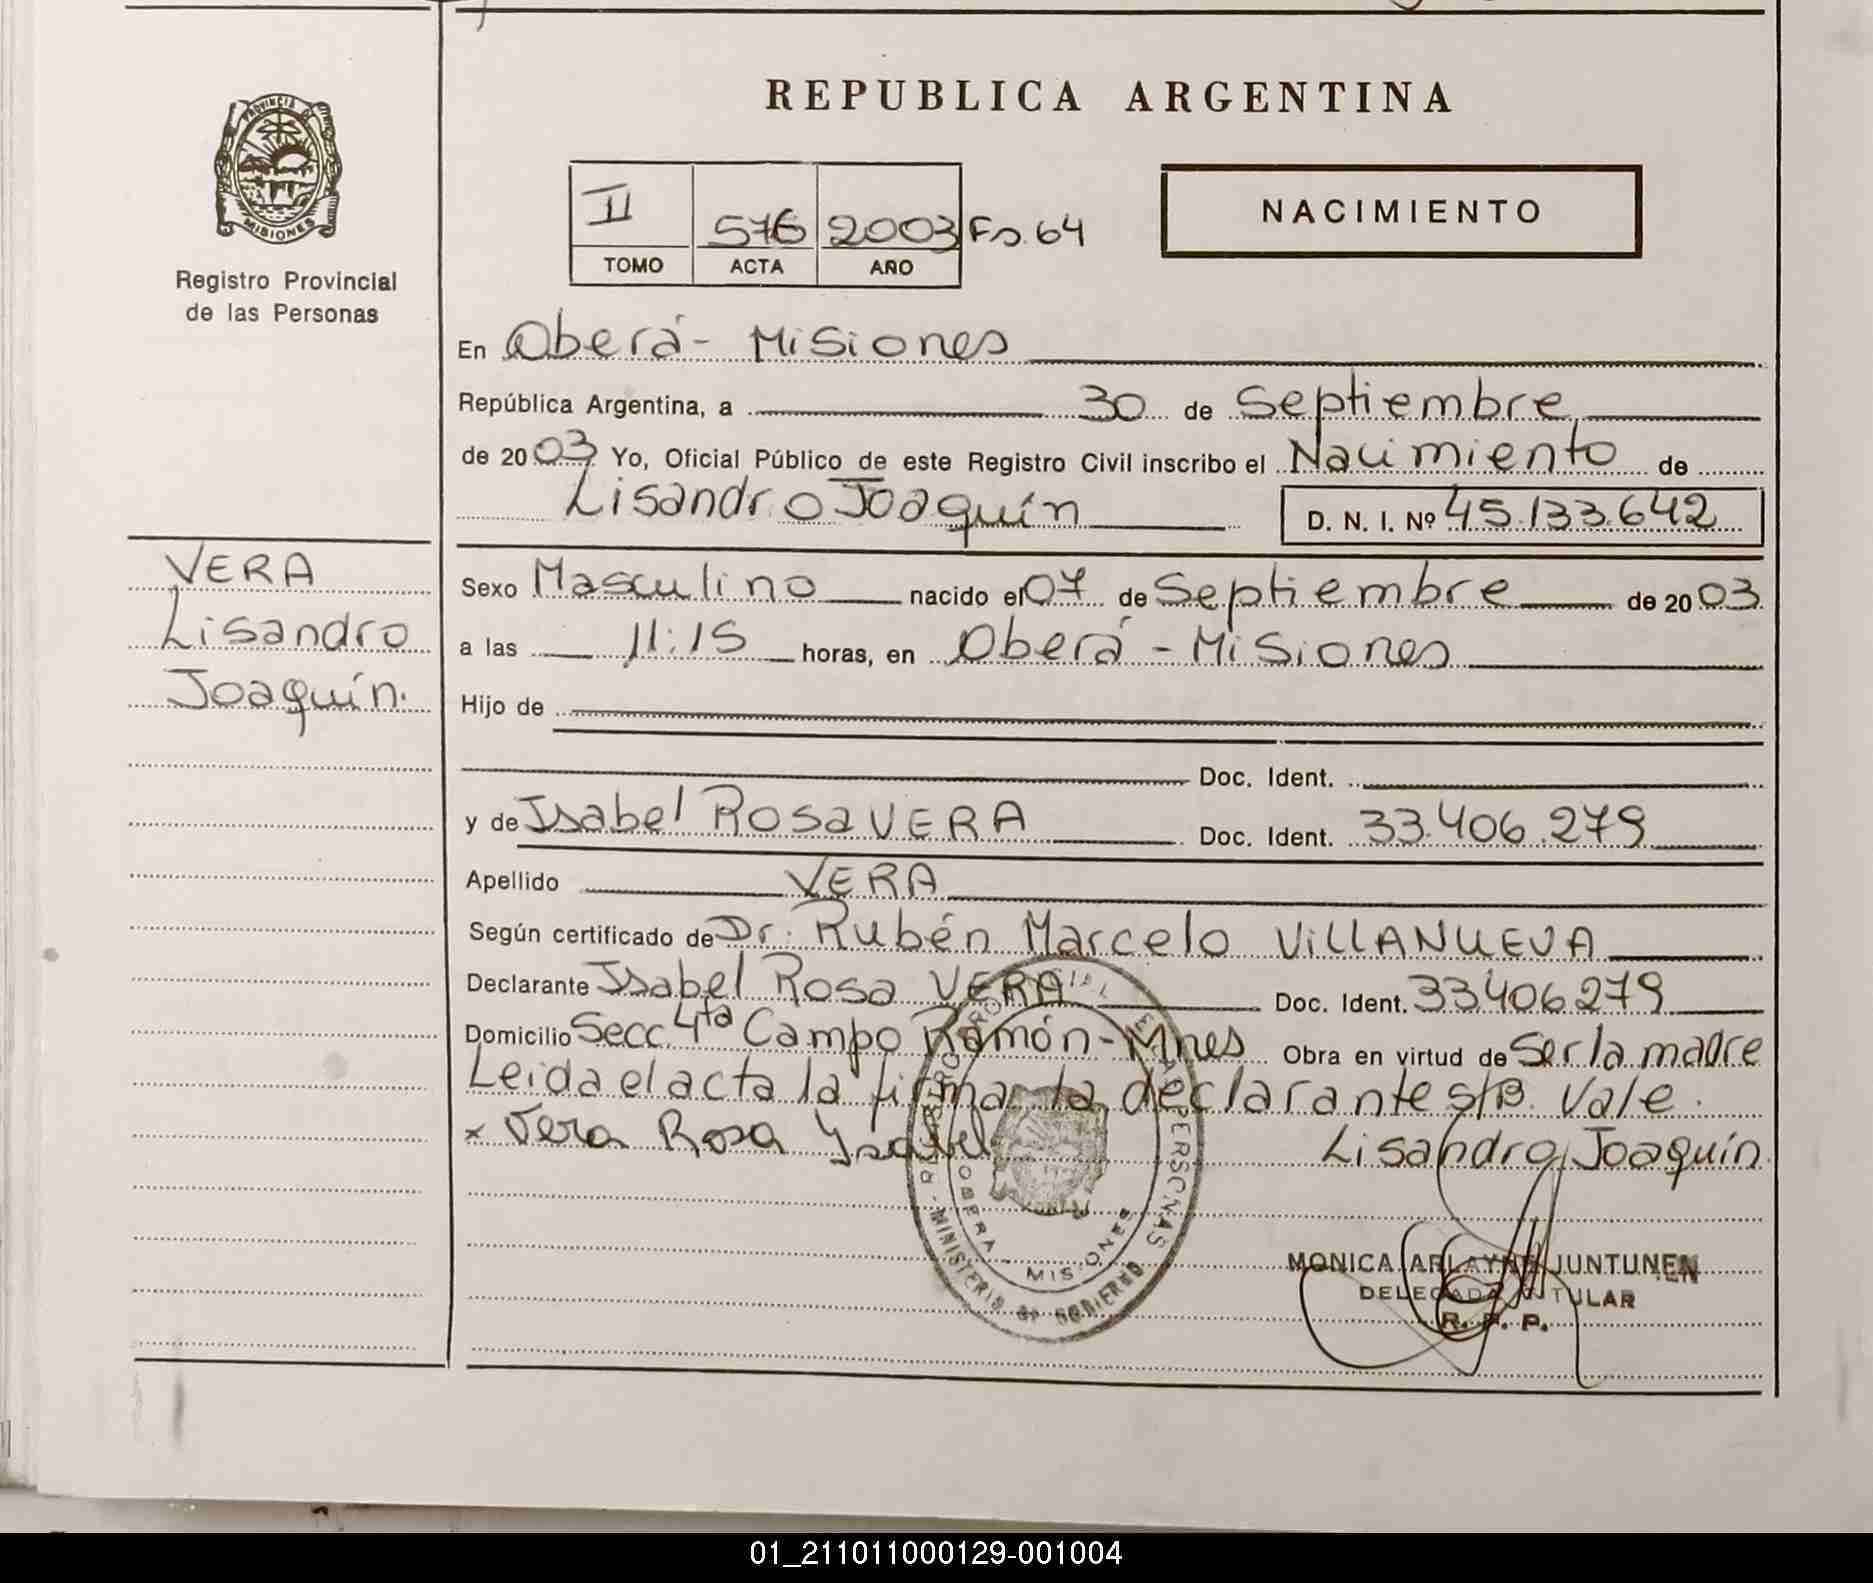 REPUBLICA ARGENTINA
PROVINCIA DE
MISIONES
Registro Provincial
de las Personas
II 576 2003 Fo. 64
TOMO ACTA AÑO
NACIMIENTO
En Oberá - Misiones
República Argentina, a 30 de Septiembre
de 2003 Yo, Oficial Público de este Registro Civil inscribo el Nacimiento de
Lisandro Joaquín D. N. I. Nº 45.133.642
VERA
Lisandro
Joaquín.
Sexo Masculino nacido el 07 de Septiembre de 2003
a las 11:15 horas, en Oberá - Misiones
Hijo de
Doc. Ident.
y de Isabel Rosa VERA Doc. Ident. 33.406.279
Apellido VERA
Según certificado de Dr. Rubén Marcelo VILLANUEVA
Declarante Isabel Rosa VERA Doc. Ident. 33406279
Domicilio Secc. 4ta Campo Ramón - Mnes Obra en virtud de Ser la madre
Leida el acta la firma la declarante s/B. Vale.
x Vera Rosa Ysabel Lisandro Joaquín
OBERA - MISIONES
MINISTERIO DE GOBIERNO
MONICA ARLAYNE JUNTUNEN
DELEGADA TITULAR
R. P. P.
01_211011000129-001004